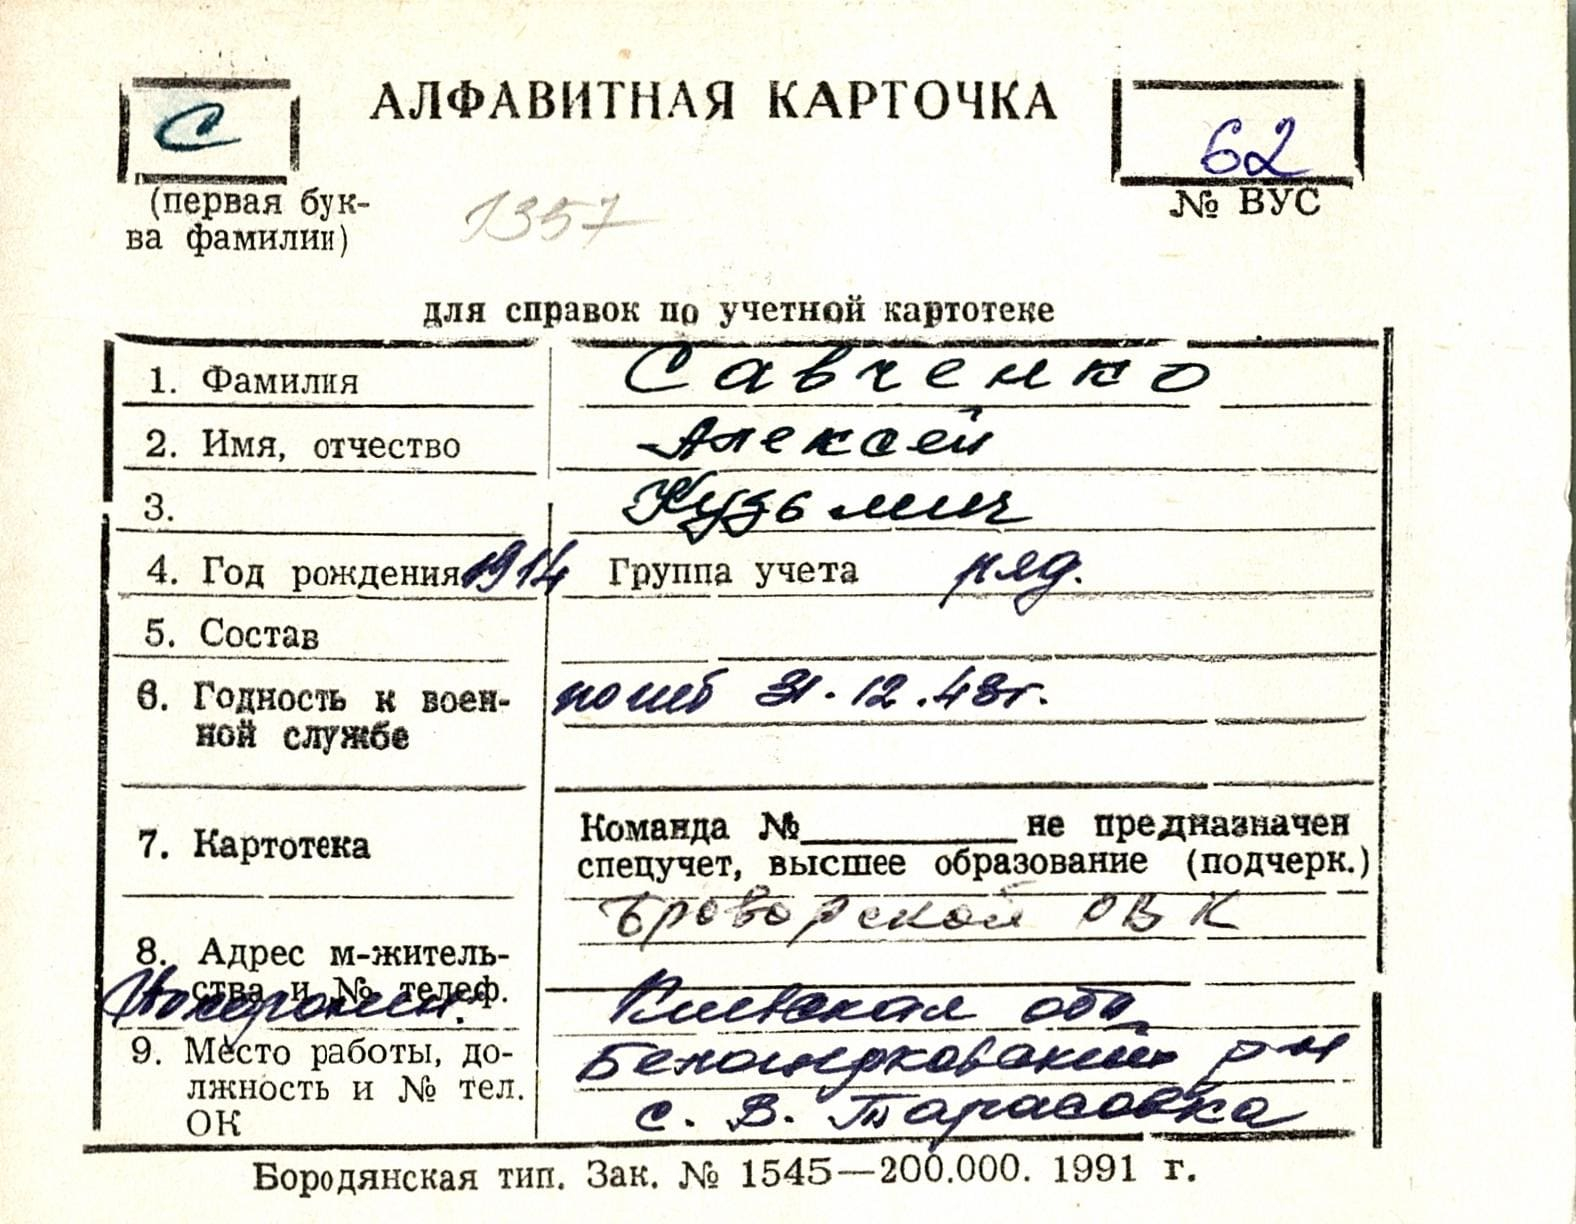 С
АЛФАВИТНАЯ КАРТОЧКА
62
(первая бук-
ва фамилии)
1357
№ ВУС
для справок по учетной картотеке
1. Фамилия Савченко
2. Имя, отчество Алексей
3. Кузьмич
4. Год рождения 1914 Группа учета ряд.
5. Состав
6. Годность к воен-
ной службе
погиб 31.12.43г.
7. Картотека
Команда №__________ не предназначен
спецучет, высшее образование (подчерк.)
Броворской ОВК
8. Адрес м-житель-
ства и № телеф.
Похоронен.
Киевская обл
9. Место работы, до-
лжность и № тел.
ОК
Белоцерковский р-н
с. В. Тарасовка
Бородянская тип. Зак. № 1545—200.000. 1991 г.